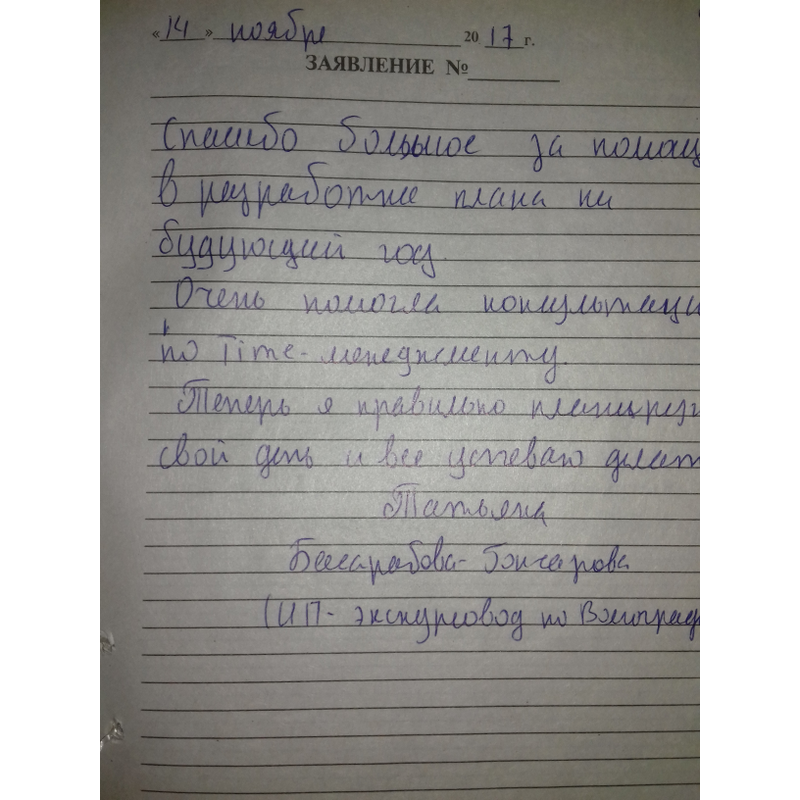 «14» ноября 2017 г.
ЗАЯВЛЕНИЕ №
Спасибо большое за помощ
в разработке плана на
будующий год.
Очень помогла консультаци
по Time-менеджменту.
Теперь я правильно планирую
свой день и все успеваю делат
Татьяна
Басарабова-Гончарова
(ИП-экскурсовод по Волгоград